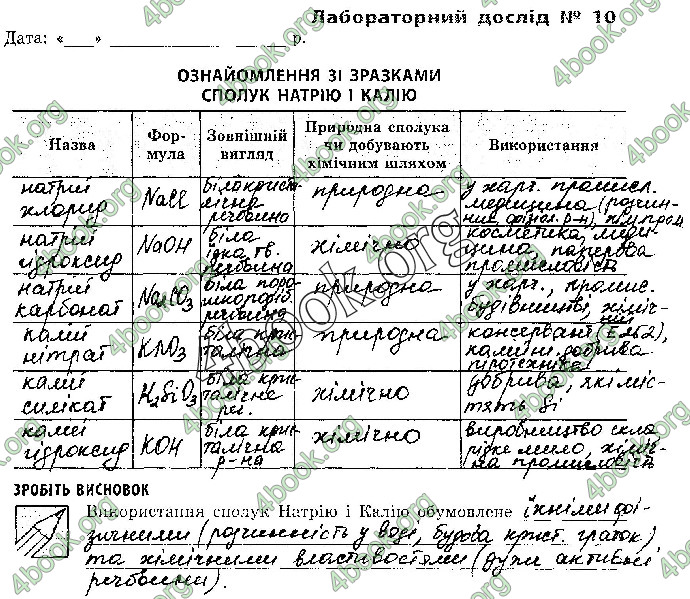 Лабораторний дослід № 10
Дата: «___» ______________ ______ р.
ОЗНАЙОМЛЕННЯ ЗІ ЗРАЗКАМИ
СПОЛУК НАТРІЮ І КАЛІЮ
Назва | Фор-мула | Зовнішній вигляд | Природна сполука чи добувають хімічним шляхом | Використання
натрій хлорид | NaCl | біла кристалічна речовина | природна | у харч. промисл. медицина (розчин-ник фізіол. р-н),
натрій гідроксид | NaOH | біла їдка тв. речовина | хімічно | косметика, меди-цина, паперова промисловість
натрій карбонат | Na2CO3 | біла порошкоподіб. речовина | природна | у харч., промис. будівництві, хіміч-ній
калій нітрат | KNO3 | біла кристалічна | природна | консервант (E252), добрива піротехніка
калій силікат | K2SiO3 | біла крис-талічна реч. | хімічно | добрива, які міс-тять Si
калій гідроксид | KOH | біла крис-талічна р-на | хімічно | виробництво скла рідке мило, хіміч-на промисловість
ЗРОБІТЬ ВИСНОВОК
Використання сполук Натрію і Калію обумовлене їхніми фі-
зичними (розчинність у воді, будова крист. ґраток)
та хімічними властивостями (дуже активні
речовини).
4book.org